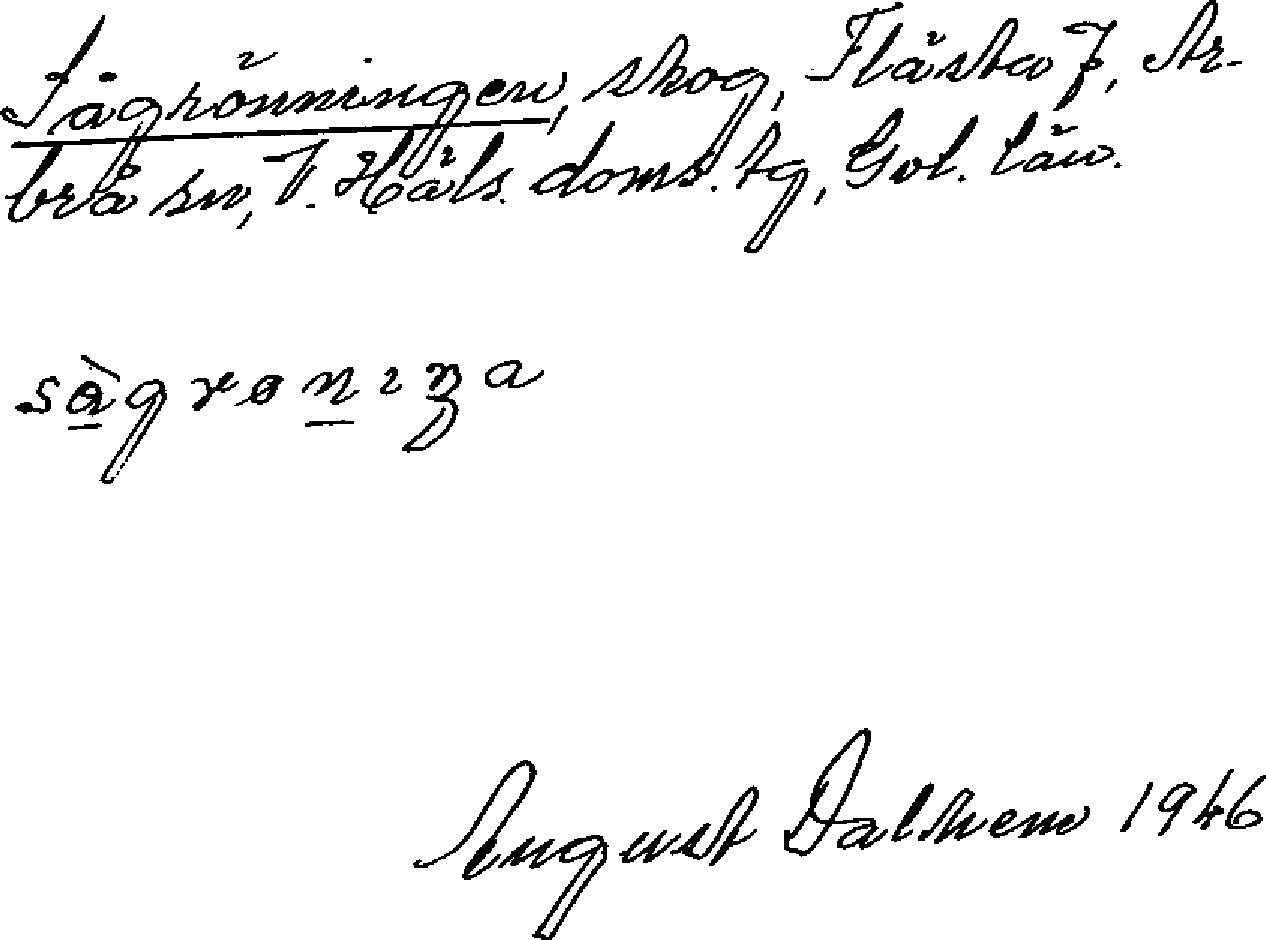 Sågrönningen, skog, Flästa 7, Ar-
brå sn, V. Häls. doms. tg, Gvl. län.
sågrønıŋa
August Dalhem 1946